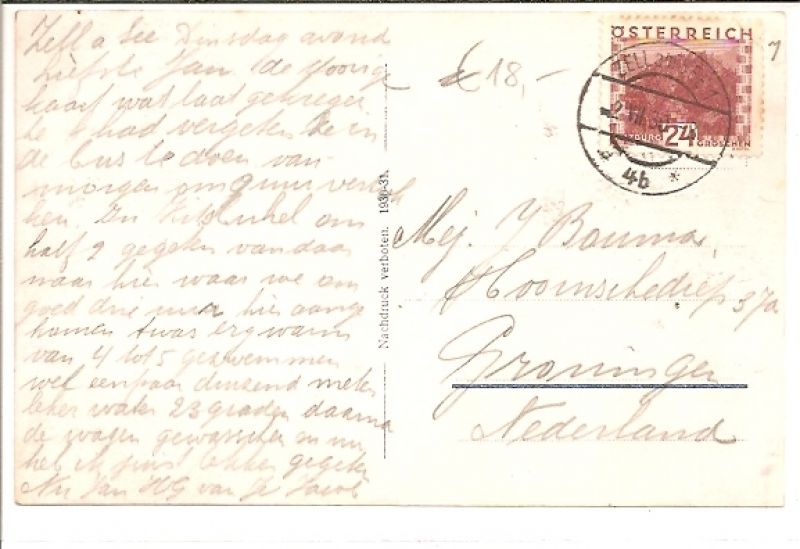 Zell a See Dinsdag avond
Liefste Jan. de vorige
kaart wat laat gekregen
had vergeten in
de bus te doen van
morgen om 9 uur
ken. In Kitzbuhel om
half 2 gegeten vandaar
naar hier waar we om
goed drie uur hier aange
komen twas erg warm
van 4 tot 5 gezwommen
wel eenpaar duizend meter
lekker water 23 graden daarna
de wagen gewasschen en nu
heb ik juist lekker gegeten
Nu Jan HG van Je
Nachdruck verboten. 1930-31.
€ 18,-
ÖSTERREICH
ZELL
24
GROSCHEN
4b
Mej. J Bouma,
Hoornschediep 37a
Groningen
Nederland